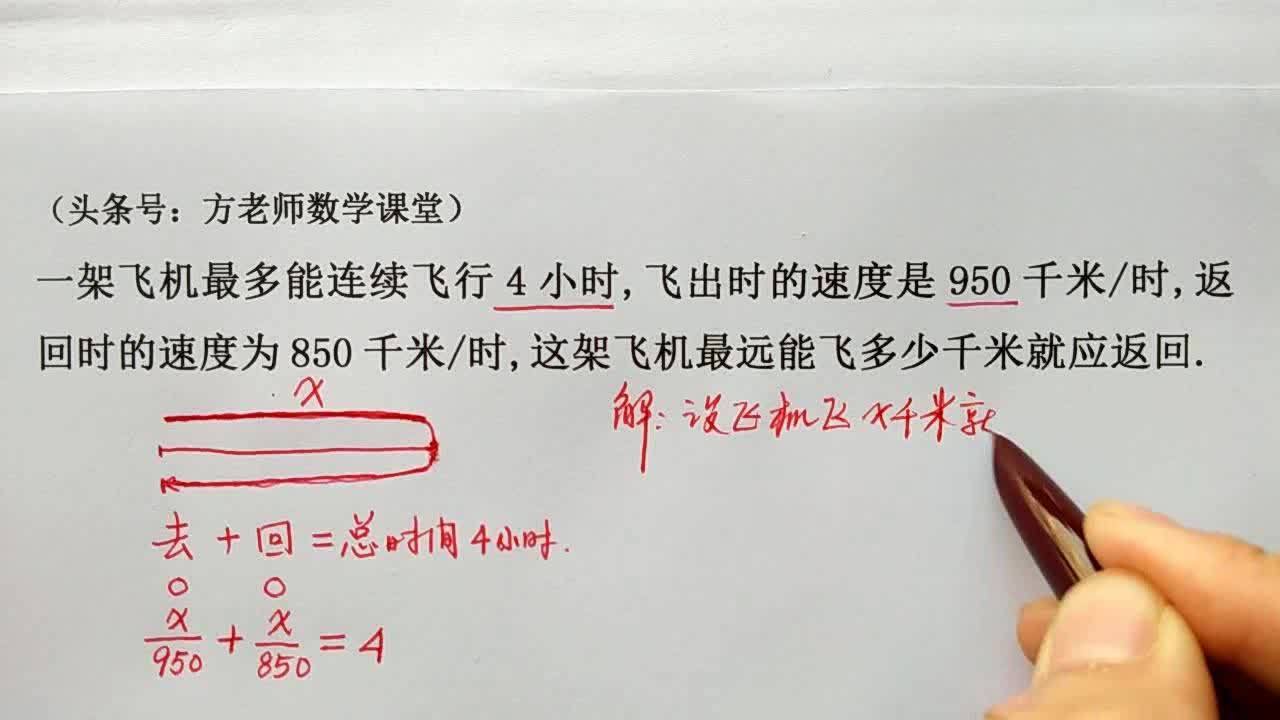 （头条号：方老师数学课堂）
一架飞机最多能连续飞行 4 小时，飞出时的速度是 950 千米/时，返
回时的速度为 850 千米/时，这架飞机最远能飞多少千米就应返回.
x
解：设飞机飞 x千米就
去 + 回 = 总时间4小时.
x/950 + x/850 = 4